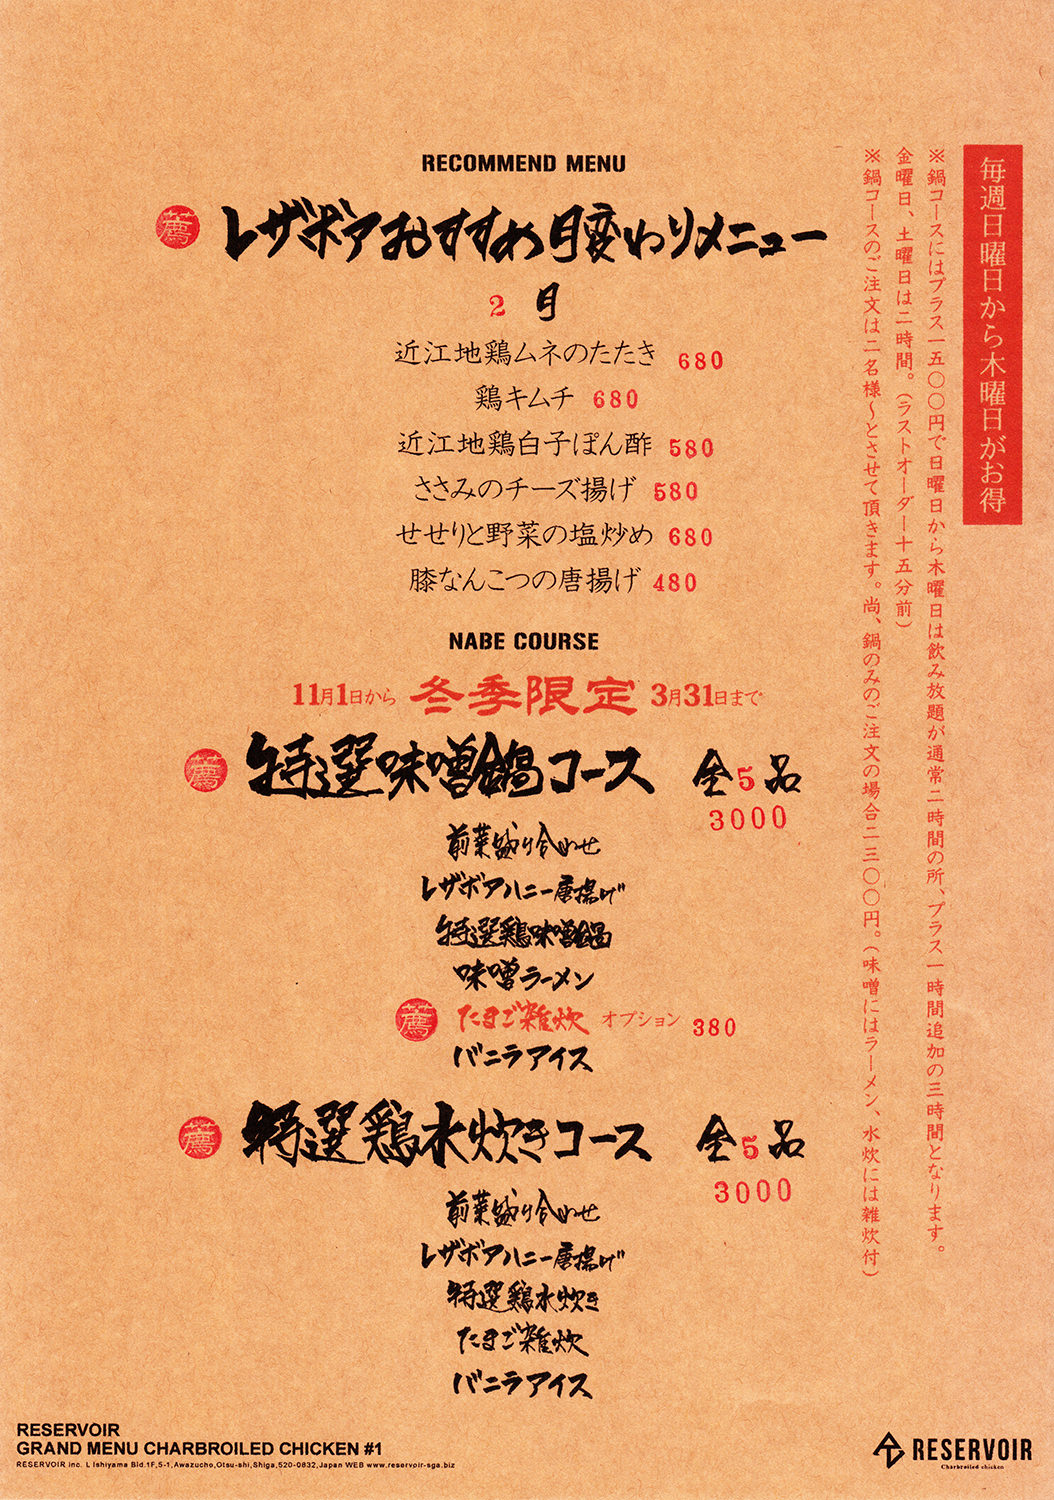 毎週日曜日から木曜日がお得
※鍋コースにはプラス一五〇〇円で日曜日から木曜日は飲み放題が通常二時間の所、プラス一時間追加の三時間となります。
金曜日、土曜日は二時間。（ラストオーダー十五分前）
※鍋コースのご注文は二名様〜とさせて頂きます。尚、鍋のみのご注文の場合二三〇〇円。（味噌にはラーメン、水炊には雑炊付）
RECOMMEND MENU
薦 レザボアおすすめ月変わりメニュー
2 月
近江地鶏ムネのたたき 680
鶏キムチ 680
近江地鶏白子ぽん酢 580
ささみのチーズ揚げ 580
せせりと野菜の塩炒め 680
膝なんこつの唐揚げ 480
NABE COURSE
11月1日から 冬季限定 3月31日まで
薦 特選味噌鍋コース 全5品
3000
前菜盛り合わせ
レザボアハニー唐揚げ
特選鶏味噌鍋
味噌ラーメン
薦 たまご雑炊 オプション 380
バニラアイス
薦 特選鶏水炊きコース 全5品
3000
前菜盛り合わせ
レザボアハニー唐揚げ
特選鶏水炊き
たまご雑炊
バニラアイス
RESERVOIR
GRAND MENU CHARBROILED CHICKEN #1
RESERVOIR inc. L Ishiyama Bld.1F,5-1,Awazucho,Otsu-shi,Shiga,520-0832,Japan WEB www.reservoir-sga.biz
RESERVOIR
Charbroiled chicken